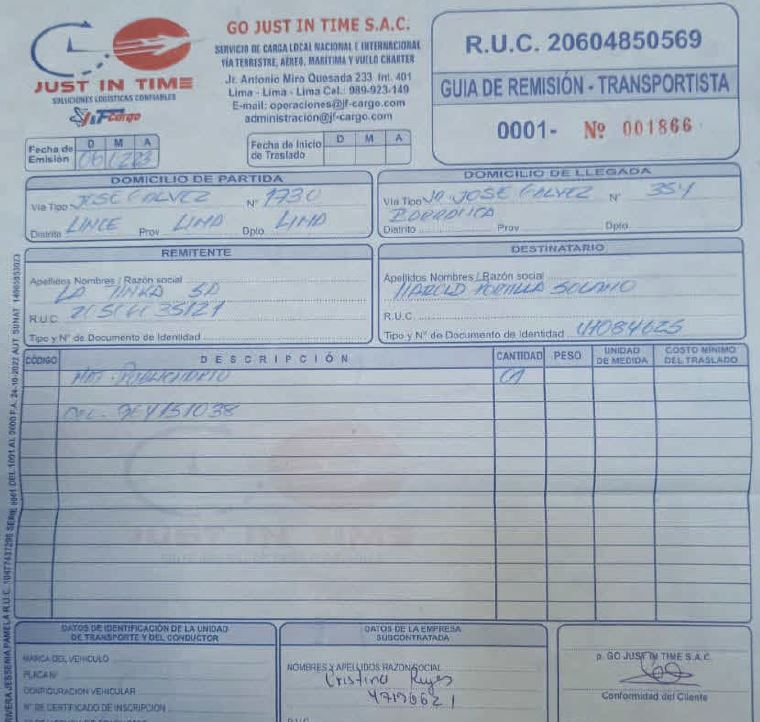 JUST IN TIME
SOLUCIONES LOGISTICAS CONFIABLES
JF Cargo
GO JUST IN TIME S.A.C.
SERVICIO DE CARGA LOCAL NACIONAL E INTERNACIONAL
VÍA TERRESTRE, AÉREO, MARÍTIMA Y VUELO CHARTER
Jr. Antonio Miro Quesada 233 Int. 401
Lima - Lima - Lima Cel.: 989-923-149
E-mail: operaciones@jf-cargo.com
administración@jf-cargo.com
R.U.C. 20604850569
GUIA DE REMISIÓN - TRANSPORTISTA
0001- Nº 001866
Fecha de Emisión D M A
Fecha de Inicio de Traslado D M A
DOMICILIO DE PARTIDA
Vía Tipo JOSE GALVEZ Nº 1730
Distrito LINCE Prov LIMA Dpto. LIMA
DOMICILIO DE LLEGADA
Vía Tipo JOSE GALVEZ Nº 354
Distrito Prov. Dpto.
REMITENTE
Apellidos Nombres / Razón social
LA SA
R.U.C.
Tipo y Nº de Documento de Identidad
DESTINATARIO
Apellidos Nombres / Razón social
R.U.C.
Tipo y Nº de Documento de Identidad
CÓDIGO DESCRIPCIÓN CANTIDAD PESO UNIDAD DE MEDIDA COSTO MÍNIMO DEL TRASLADO
01
DATOS DE IDENTIFICACIÓN DE LA UNIDAD
DE TRANSPORTE Y DEL CONDUCTOR
MARCA DEL VEHICULO
PLACA Nº
CONFIGURACION VEHICULAR
Nº DE CERTIFICADO DE INSCRIPCION
DATOS DE LA EMPRESA
SUBCONTRATADA
NOMBRES Y APELLIDOS RAZON SOCIAL
Cristina Reyes
p. GO JUST IN TIME S.A.C.
Conformidad del Cliente